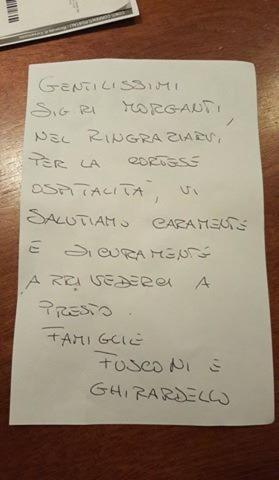 GENTILISSIMI
SIG.RI MORGANTI,
NEL RINGRAZIARVI
PER LA CORTESE
OSPITALITÀ, VI
SALUTIAMO CARAMENTE
E SICURAMENTE
ARRIVEDERCI A
PRESTO.
FAMIGLIE
FUSCONI E
GHIRARDELLO